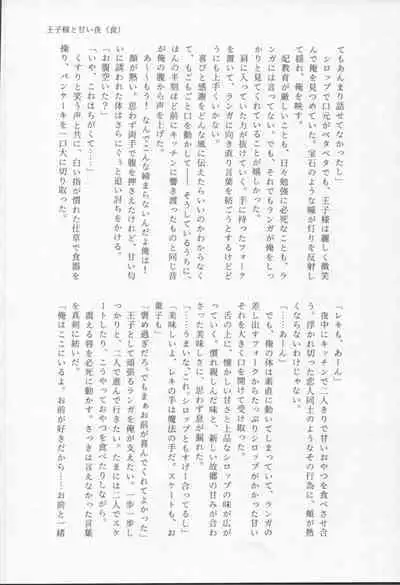 王子様と甘い夜（食）
てもあんまり話せてなかったし」
シロップで口元がベタベタでも、王子様は麗しく微笑
んで俺を見つめていた。宝石のような瞳が灯りを反射し
て揺れ、俺を映す。
妃教育が厳しいことも、日々勉強に必死なことも、ラ
ンガには言ってない。でも、それでもランガが俺をしっ
かりと見てくれていることが嬉しかった。
肩に入っていた力が抜けていく。手に持ったフォーク
を置いて、ランガに向き直り言葉を紡ごうとするけどど
うにも上手くいかない。
喜びと感謝をどんな風に伝えたらいいのかわからなく
て、もごもご口を動かして――そうしているうちに、
ほんの半刻ほど前にキッチンに響き渡ったものと同じ音
が俺の腹から声を上げた。
あ～～もう！なんでこんな締まらないんだよ俺は！
顔が熱い。思わず両手で腹を押さえたけれど、甘い匂
いに誘われた体はさらにぐぅと追い討ちをかける。
「お腹空いた？」
「いや、これはちがくて……」
くすりと笑う声と共に、白い指が慣れた仕草で食器を
操り、パンケーキを一口大に切り取った。
「レキも、あーん」
夜中にキッチンで二人きりで甘いおやつを食べさせ合
う。浮かれ切った恋人同士のようなその行為に、頬が熱
くならないわけじゃない。
「……あーん」
でも、俺の体は素直に動いてしまっていて、ランガの
差し出すフォークからたっぷりシロップがかかった甘い
それを大きく口を開けて受け取った。
舌の上に、懐かしい甘さと上品なシロップの味が広が
っていく。慣れ親しんだ味と、新しい故郷の甘みが合わ
さった美味しさに、思わず息が漏れた。
「……うまいな、これ。シロップともすげー合ってるし」
「美味しいよ、レキの手は魔法の手だ。スケートも、お
菓子も」
「褒め過ぎだろ。でもまぁお前が喜んでくれてよかった」
王子として頑張るランガを俺が支えたい。一歩一歩し
っかりと、二人で進んで行きたい。たまには二人でスケ
ートしたり、こうやっておやつを食べたりしながら。
震える唇を必死に動かす。さっきは言えなかった言葉
を真剣に紡いだ。
「俺はここにいるよ。お前が好きだから……お前と一緒